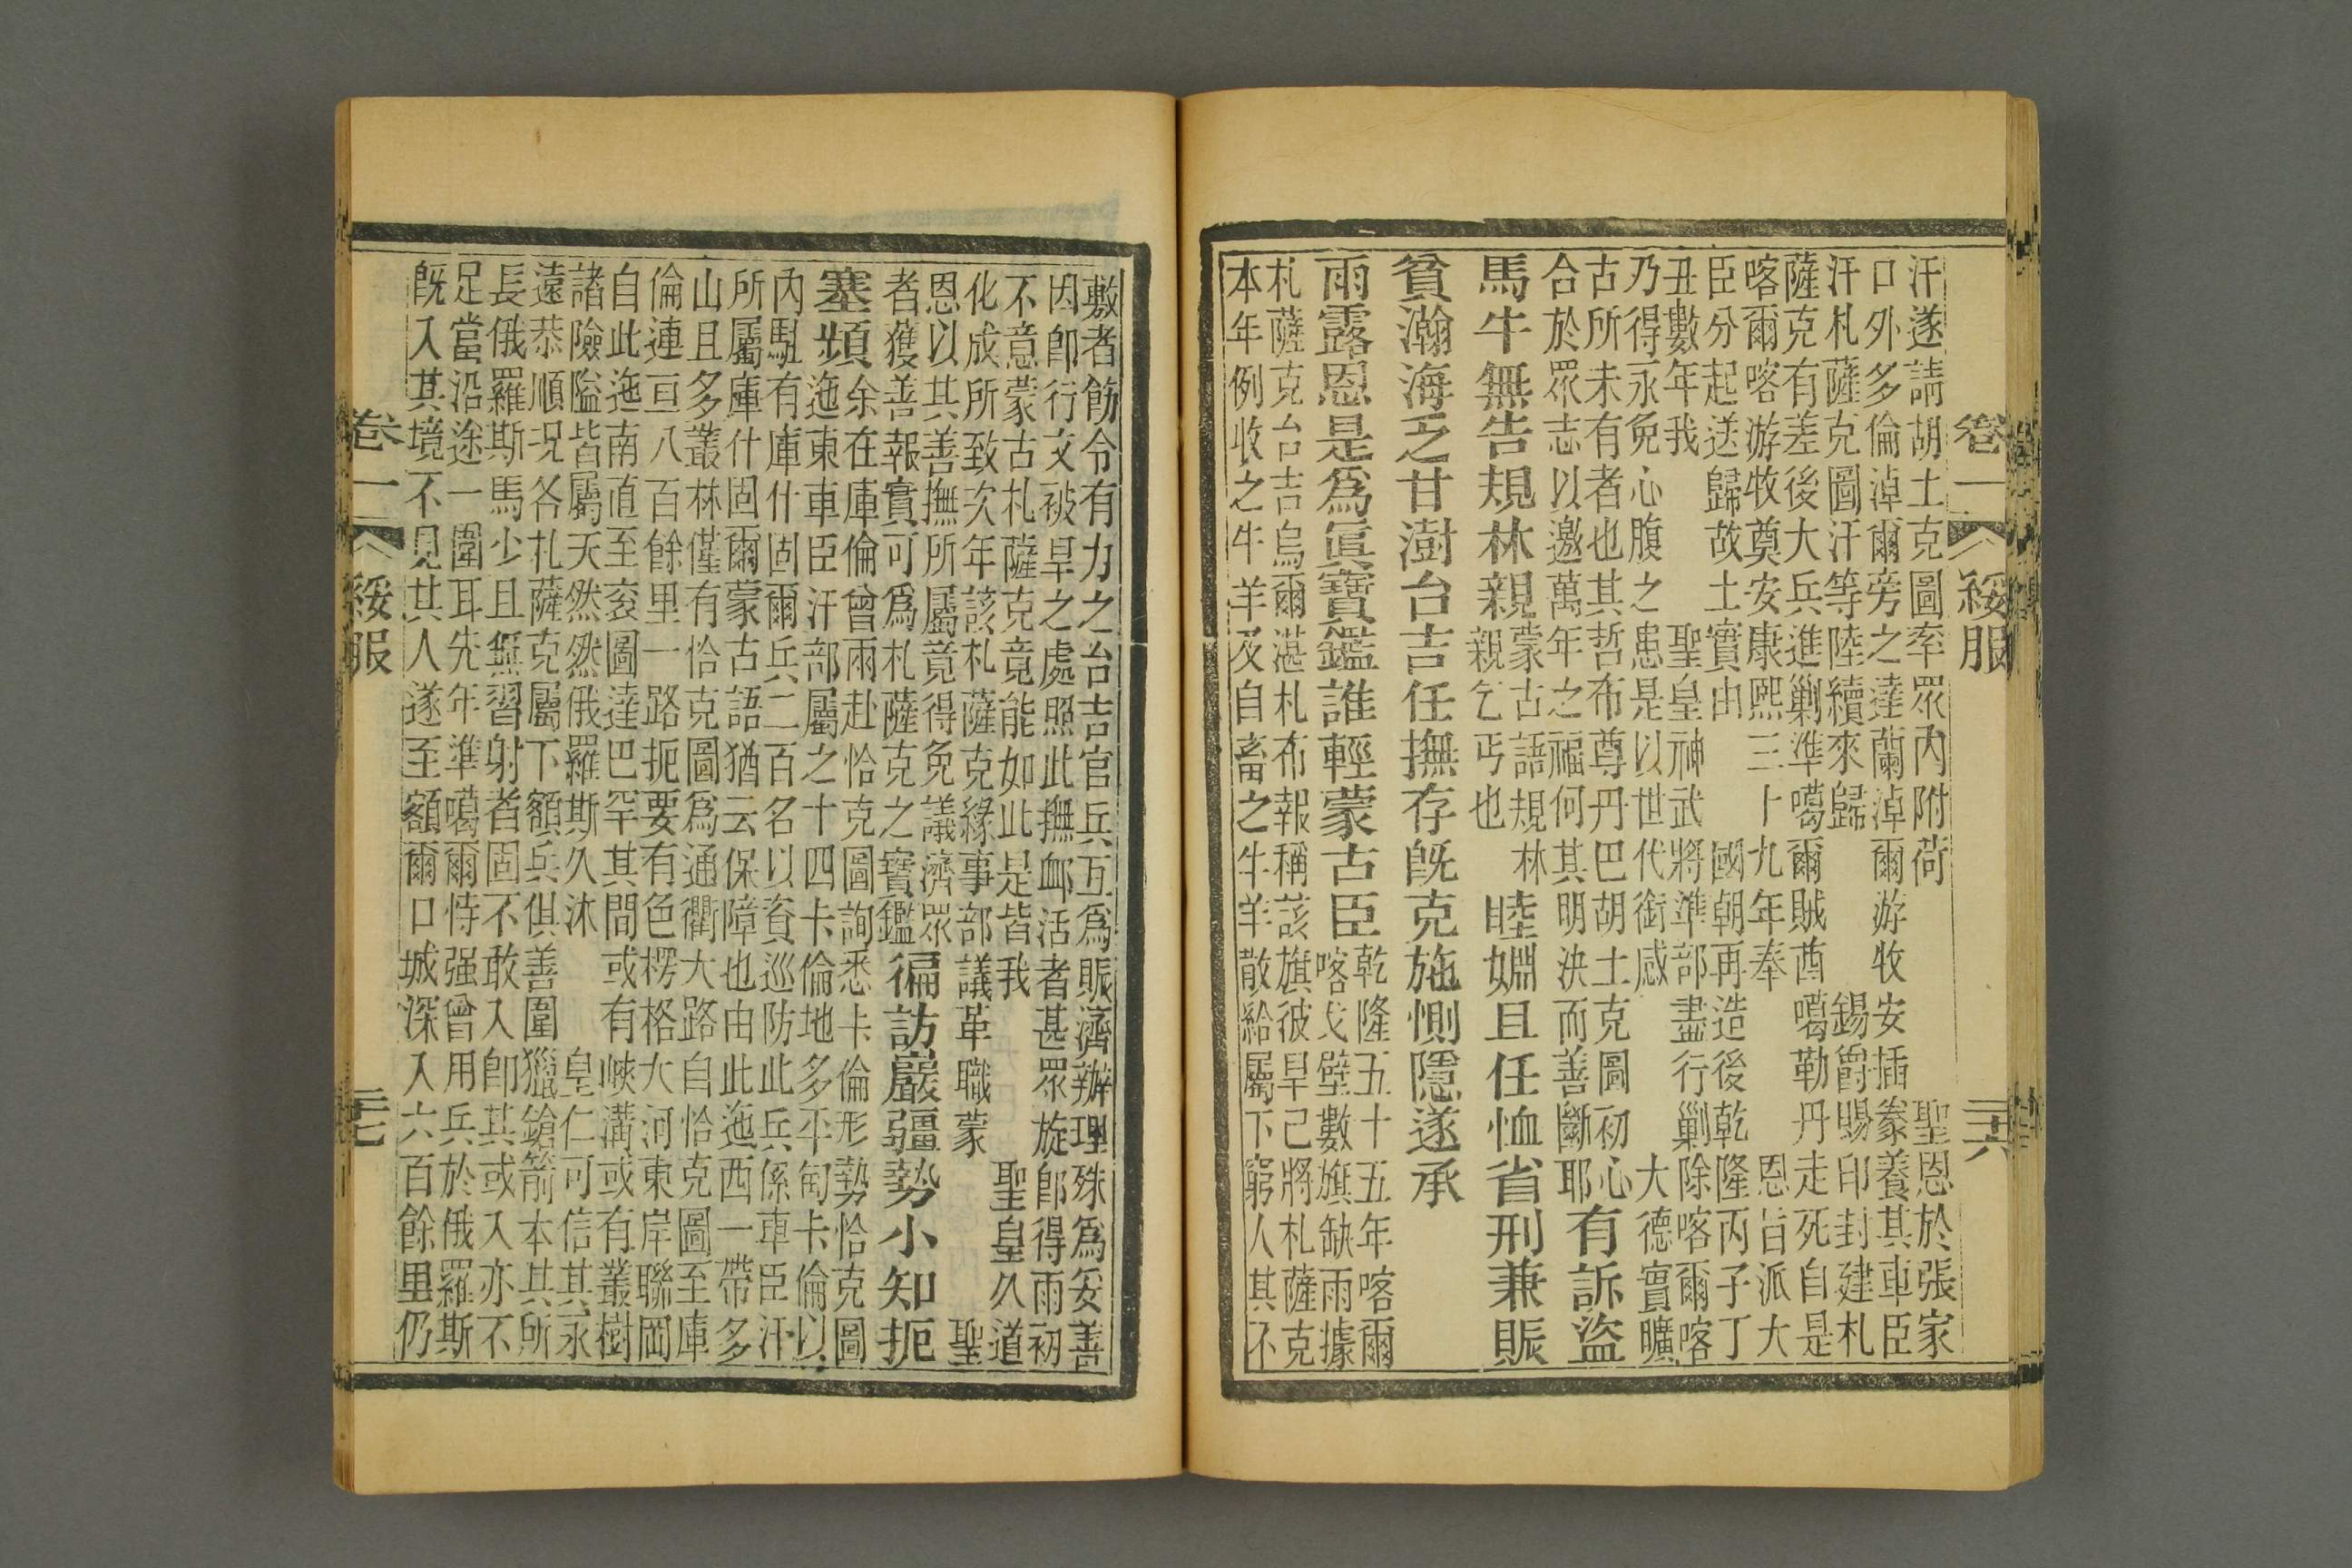 卷一 綏服 二十六
汗遂請胡土克圖率眾內附荷 聖恩於張家
口外多倫淖爾旁之達蘭淖爾游牧安插豢養其車臣
汗札薩克圖汗等陸續來歸 錫爵賜印封建札
薩克有差後大兵進剿準噶爾賊酋噶勒丹走死自是
喀爾喀游牧奠安康熙三十九年奉 恩旨派大
臣分起送歸故土實由 國朝再造後乾隆丙子丁
丑數年我 聖皇神武將準部盡行剿除喀爾喀
乃得永免心腹之患是以世代銜感 大德實曠
古所未有者也其哲布尊丹巴胡土克圖初心
合於眾志以邀萬年之福何其明決而善斷耶
有訴盜
馬牛無告規林親
蒙古語規林
親乞丐也
睦婣且任恤省刑兼賑
貧瀚海乏甘澍台吉任撫存既克施惻隱遂承
雨露恩是爲眞寶鑑誰輕蒙古臣
乾隆五十五年喀爾
喀戈壁數旗缺雨據
札薩克台吉烏爾湛札布報稱該旗彼旱己將札薩克
本年例收之牛羊及自畜之牛羊散給屬下窮人其不
敷者飭令有力之台吉官兵互爲賑濟辦理殊爲妥善
因卽行文被旱之處照此撫卹活者甚眾旋卽得雨初
不意蒙古札薩克竟能如此是皆我 聖皇久道
化成所致次年該札薩克緣事部議革職蒙 聖
恩以其善撫所屬竟得免議濟眾
者獲善報實可爲札薩克之寶鑑
徧訪巖疆勢小知扼
塞頻
余在庫倫曾兩赴恰克圖詢悉卡倫形勢恰克圖
迤東車臣汗部屬之十四卡倫地多平甸卡倫以
內駐有庫什固爾兵二百名以資巡防此兵係車臣汗
所屬庫什固爾蒙古語猶云保障也由此迤西一帶多
山且多叢林僅有恰克圖爲通衢大路自恰克圖至庫
倫連亘八百餘里一路扼要有色楞格大河東岸聯岡
自此迤南直至袞圖達巴罕其間或有峽溝或有叢樹
諸險隘皆屬天然然俄羅斯久沐 皇仁可信其永
遠恭順況各札薩克屬下額兵俱善圍獵鎗箭本其所
長俄羅斯馬少且無習射者固不敢入卽其或入亦不
足當沿途一圍耳先年準噶爾恃强曾用兵於俄羅斯
既入其境不見其人遂至額爾口城深入六百餘里仍
卷一 綏服 二十七